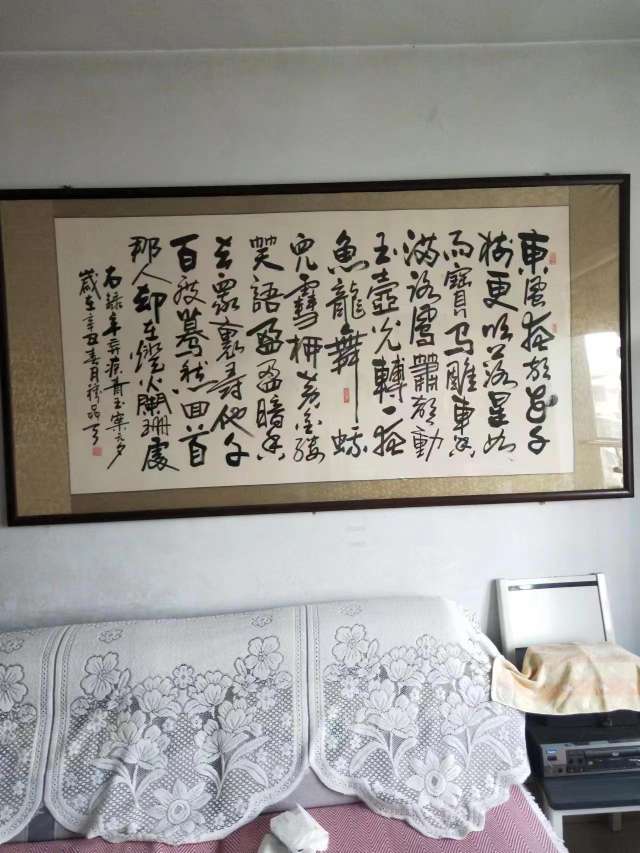 東風夜放花千
樹更吹落星如
雨寶马雕車香
滿路鳳簫聲動
玉壺光轉一夜
魚龍舞蛾
兒雪柳黄金缕
笑語盈盈暗香
去衆裏尋他千
百度驀然回首
那人却在燈火闌珊處
右録辛弃疾青玉案元夕
歲在辛丑春月